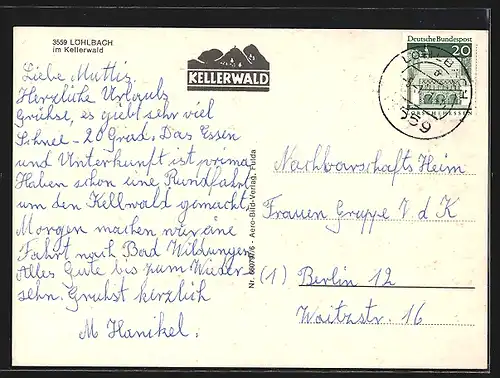 3559 LOHLBACH
im Kellerwald
KELLERWALD
Deutsche Bundespost
20
LORSCH/HESSEN
LOHLBACH
359
Liebe Muttis
Herzliche Urlaubs
Grühse, es giebt sehr viel
Schnee - 20 Grad. Das Essen
und Unterkunft ist prima
Haben schon eine Rundfahrt
um den Kellwald gemacht,
Morgen machen wir eine
Fahrt nach Bad Wildungen
Alles Gute bis zum Wieder
sehn. Gruhst herzlich
M Hanikel.
Aero-Bild-Verlag, Fulda
Nachbarschafts Heim
Frauen Gruppe V d K
(1) Berlin 12
Waitzstr. 16